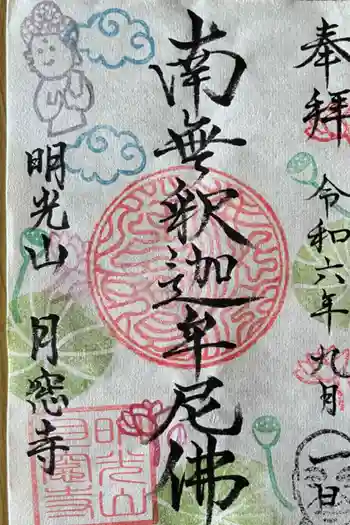 奉拝
令和六年九月一日
南無釈迦牟尼佛
明光山
月窓寺
明光山
月窓寺